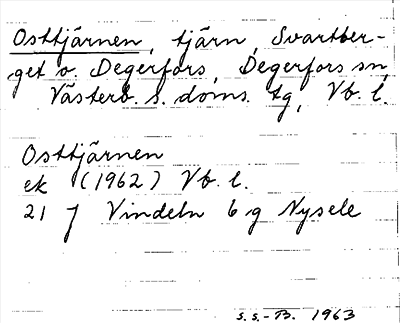 Osttjärnen, tjärn, Svartber-
get o. Degerfors, Degerfors sn,
Västerb. s. doms. tg, Vb. l.
Osttjärnen
ek (1962) Vb. l.
21 J Vindeln 6 g Nysele
S.S.-B. 1963